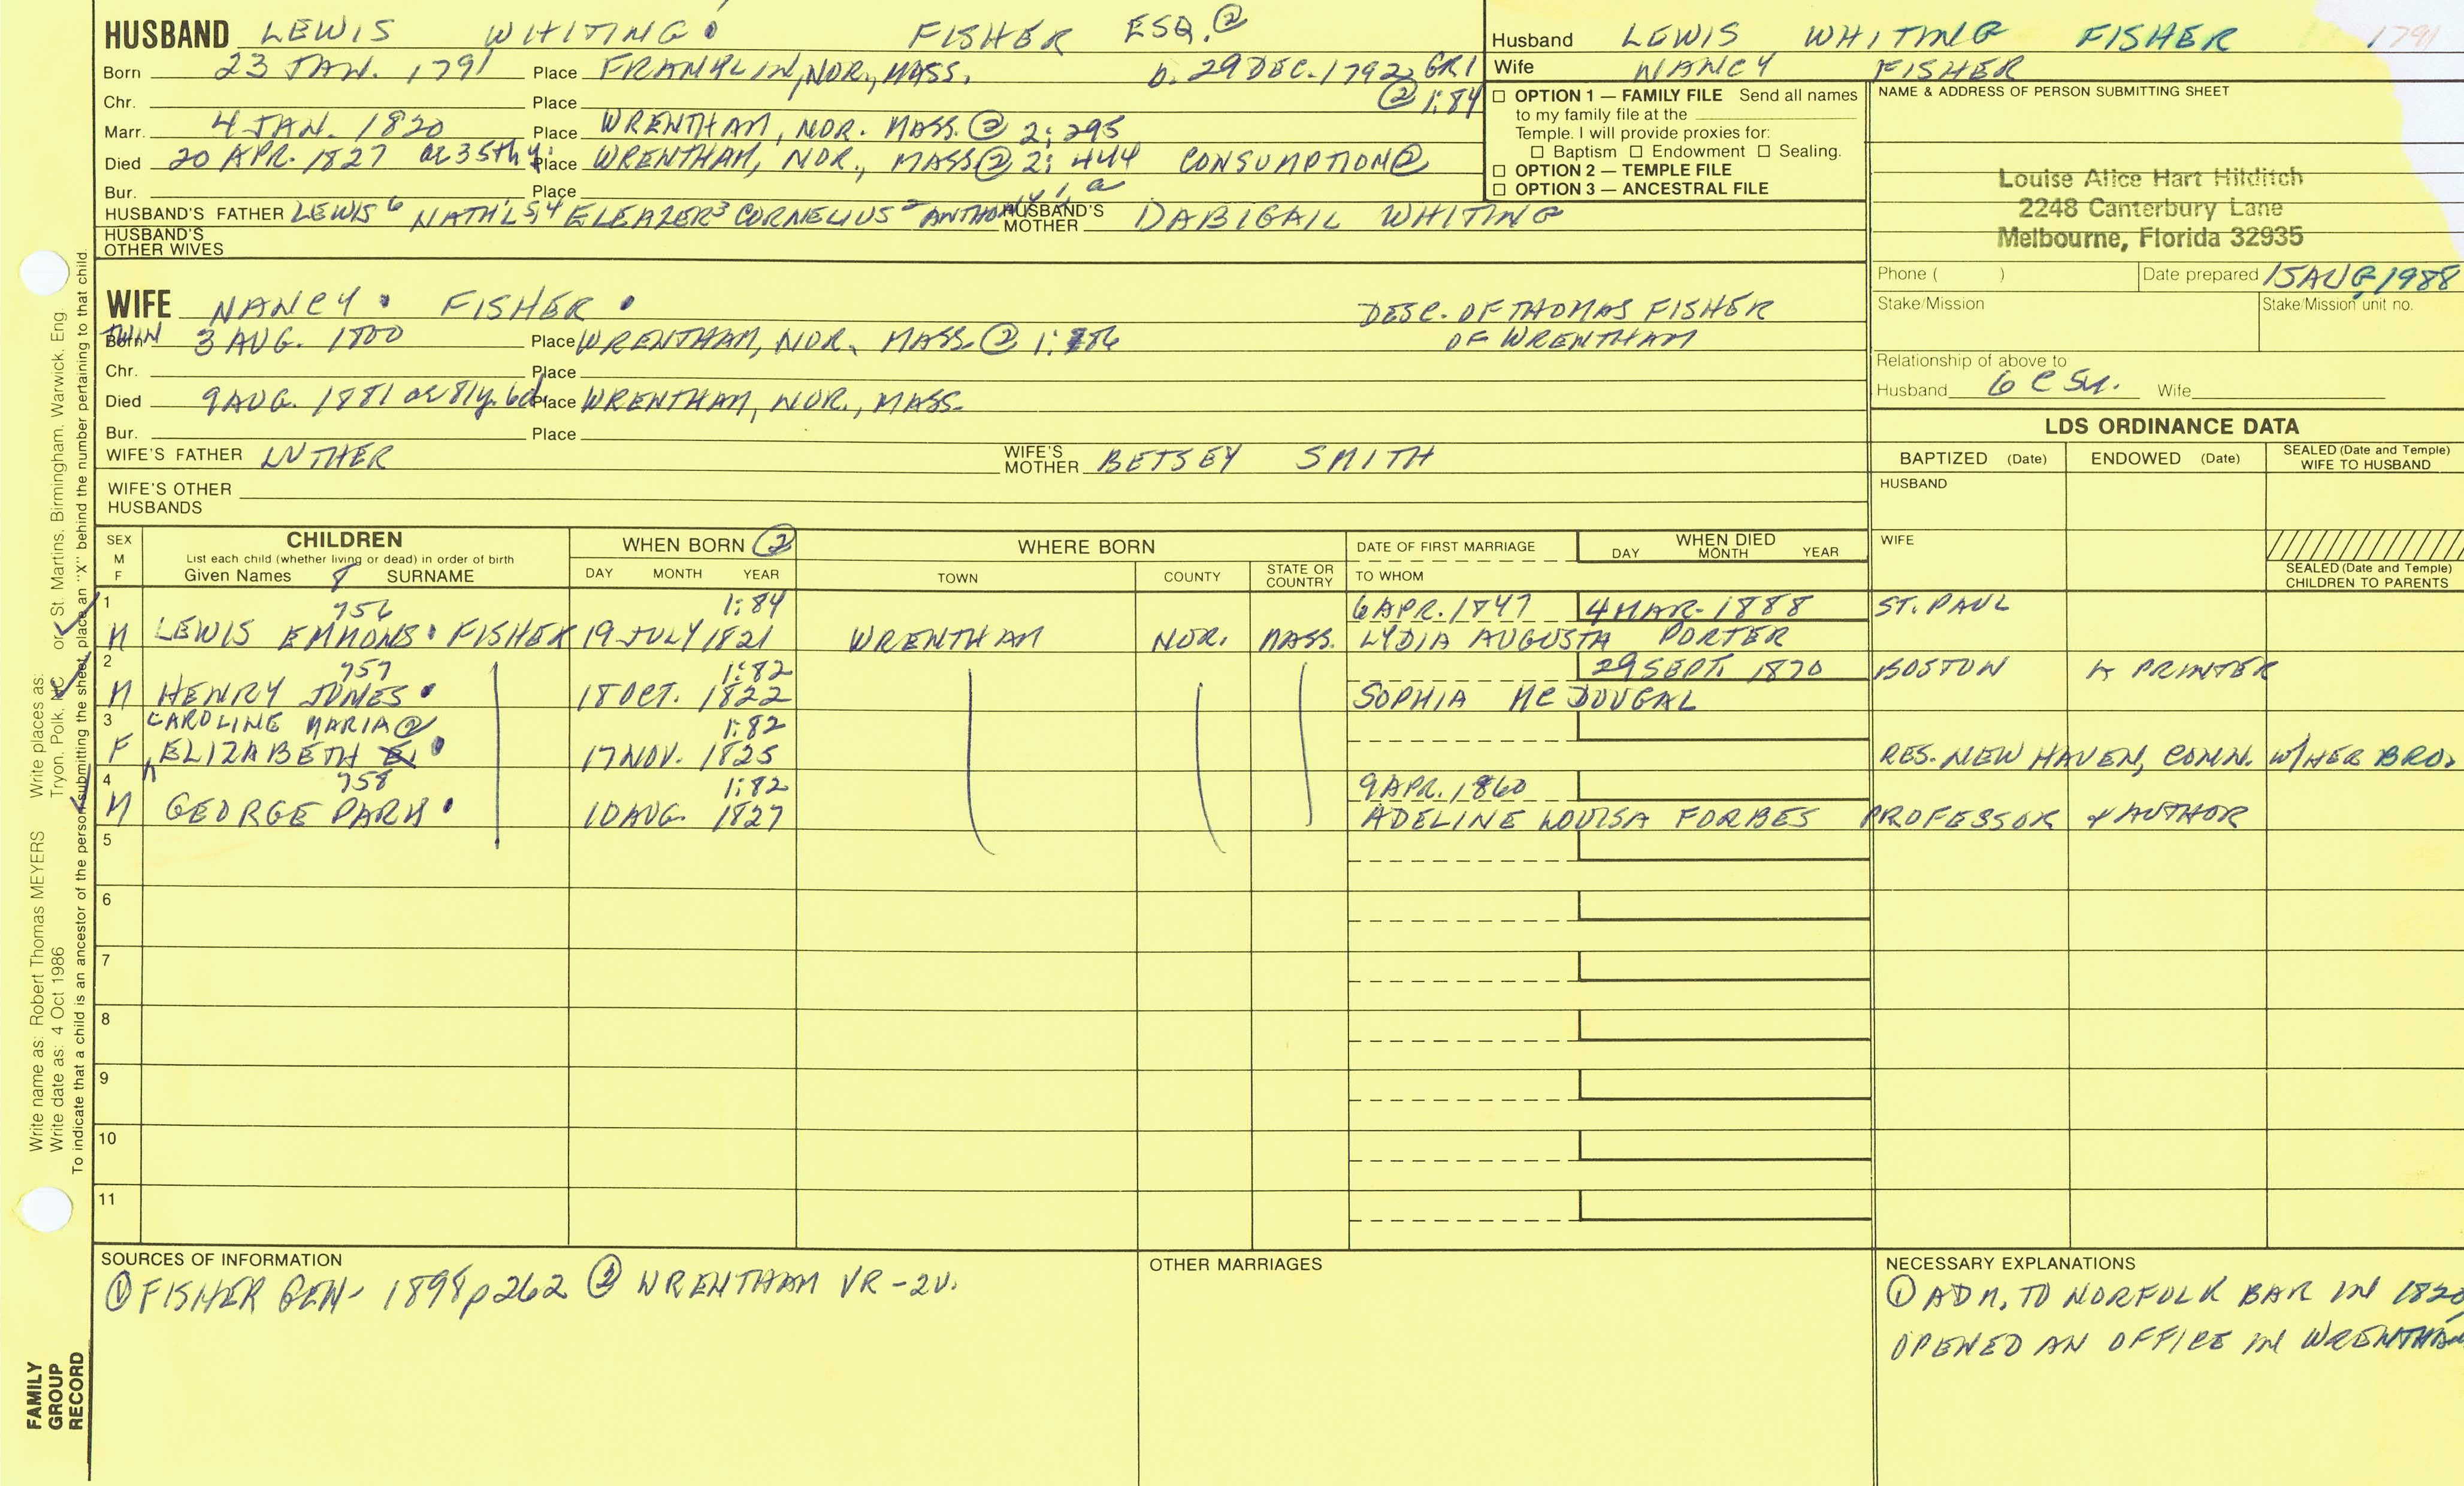 HUSBAND LEWIS WHITING FISHER ESQ. ②
Born 23 JAN. 1791 Place FRANKLIN, NOR., MASS. b. 29 DEC. 1792 GR1
② 1:84
Chr. Place
Marr. 4 JAN. 1820 Place WRENTHAM, NOR. MASS. ② 2:295
Died 20 APR. 1827 ae 35th y. Place WRENTHAM, NOR., MASS ② 2:444 CONSUMPTION ②
Bur. Place
HUSBAND'S FATHER LEWIS⁶ NATH'L⁵,⁴ ELEAZER³ CORNELIUS² ANTHONY¹,ᵃ HUSBAND'S MOTHER DABIGAIL WHITING
HUSBAND'S OTHER WIVES
Husband LEWIS WHITING FISHER 1791
Wife NANCY FISHER
☐ OPTION 1 — FAMILY FILE Send all names
to my family file at the
Temple. I will provide proxies for:
☐ Baptism ☐ Endowment ☐ Sealing.
☐ OPTION 2 — TEMPLE FILE
☐ OPTION 3 — ANCESTRAL FILE
NAME & ADDRESS OF PERSON SUBMITTING SHEET
Louise Alice Hart Hilditch
2248 Canterbury Lane
Melbourne, Florida 32935
Phone ( ) Date prepared 15 AUG 1988
Stake/Mission Stake/Mission unit no.
Relationship of above to
Husband 6 C 5x. Wife
WIFE NANCY FISHER DESC. OF THOMAS FISHER
OF WRENTHAM
TWIN
Born 3 AUG. 1800 Place WRENTHAM, NOR. MASS. ② 1:86
Chr. Place
Died 9 AUG. 1881 ae 81y. 6d. Place WRENTHAM, NOR., MASS.
Bur. Place
WIFE'S FATHER LUTHER WIFE'S MOTHER BETSEY SMITH
WIFE'S OTHER HUSBANDS
LDS ORDINANCE DATA
BAPTIZED (Date) ENDOWED (Date) SEALED (Date and Temple) WIFE TO HUSBAND
HUSBAND
WIFE
SEALED (Date and Temple) CHILDREN TO PARENTS
SEX M F CHILDREN WHEN BORN ② WHERE BORN DATE OF FIRST MARRIAGE WHEN DIED
List each child (whether living or dead) in order of birth DAY MONTH YEAR
Given Names 8 SURNAME DAY MONTH YEAR TOWN COUNTY STATE OR COUNTRY TO WHOM
1 756 1:84 6 APR. 1847 4 MAR. 1888 ST. PAUL
M LEWIS EMMONS FISHER 19 JULY 1821 WRENTHAM NOR. MASS. LYDIA AUGUSTA PORTER
2 757 1:82 29 SEPT. 1870 BOSTON A PRINTER
M HENRY JONES 18 OCT. 1822 SOPHIA MC DOUGAL
3 CAROLINE MARIA ② 1:82
F ELIZABETH E. 17 NOV. 1825 RES. NEW HAVEN, CONN. W/HER BRO.
4 758 1:82 9 APR. 1860
M GEORGE PARK 10 AUG. 1827 ADELINE LOUISA FORBES PROFESSOR & AUTHOR
5
6
7
8
9
10
11
SOURCES OF INFORMATION
① FISHER GEN- 1898 p262 ② WRENTHAM VR - 2V.
OTHER MARRIAGES
NECESSARY EXPLANATIONS
① ADM. TO NORFOLK BAR IN 1820
OPENED AN OFFICE IN WRENTHAM
Write name as: Robert Thomas MEYERS Write places as: Tryon, Polk, NC or St. Martins, Birmingham, Warwick, Eng
Write date as: 4 Oct 1986
To indicate that a child is an ancestor of the person submitting the sheet, place an "X" behind the number pertaining to that child.
FAMILY
GROUP
RECORD